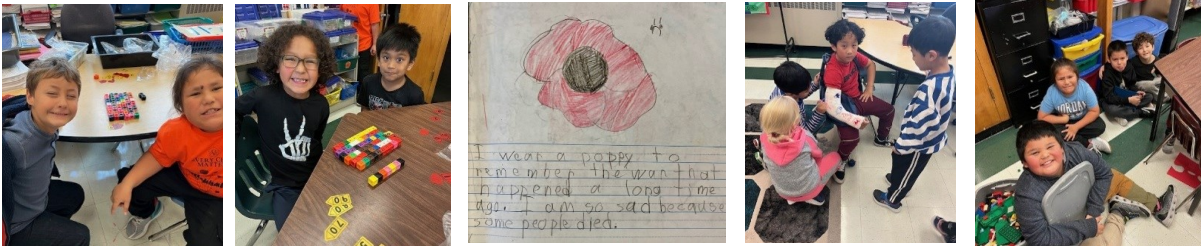 70
I wear a poppy to
remember the war that
happened a long time
ago. I am so sad because
some people died.
JORDAN